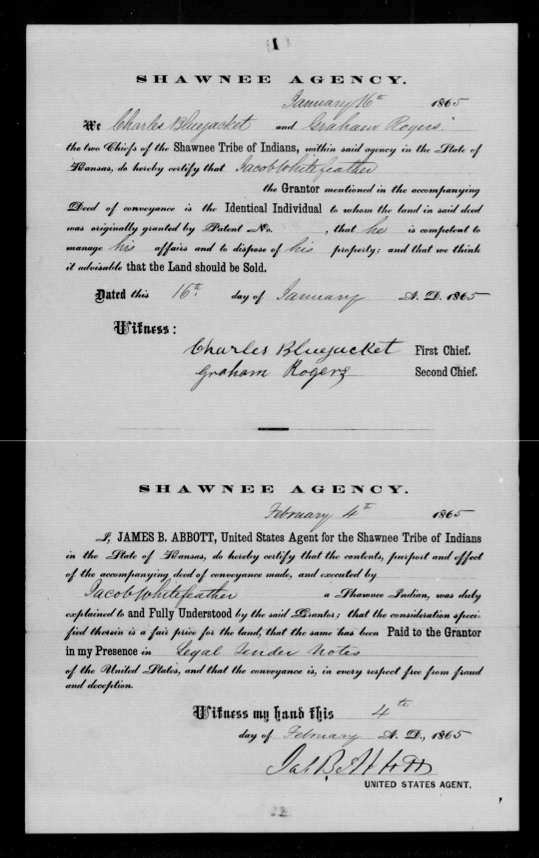 1
SHAWNEE AGENCY.
January 16th 1865
We Charles Bluejacket and Graham Rogers
the two Chiefs of the Shawnee Tribe of Indians, within said agency in the State of
Kansas, do hereby certify that Jacob Whitefeather
the Grantor mentioned in the accompanying
Deed of conveyance is the Identical Individual to whom the land in said deed
was originally granted by Patent No. , that he is competent to
manage his affairs and to dispose of his property; and that we think
it advisable that the Land should be Sold.
Dated this 16th day of January A. D. 1865
Witness:
Charles Bluejacket First Chief.
Graham Rogers Second Chief.
SHAWNEE AGENCY.
February 4th 1865
I, JAMES B. ABBOTT, United States Agent for the Shawnee Tribe of Indians
in the State of Kansas, do hereby certify that the contents, purport and effect
of the accompanying deed of conveyance made, and executed by
Jacob Whitefeather a Shawnee Indian, was duly
explained to and Fully Understood by the said Grantor; that the consideration speci-
fied therein is a fair price for the land, that the same has been Paid to the Grantor
in my Presence in Legal Tender Notes
of the United States, and that the conveyance is, in every respect free from fraud
and deception.
Witness my hand this 4th
day of February A. D., 1865
Jas B. Abbott
UNITED STATES AGENT.